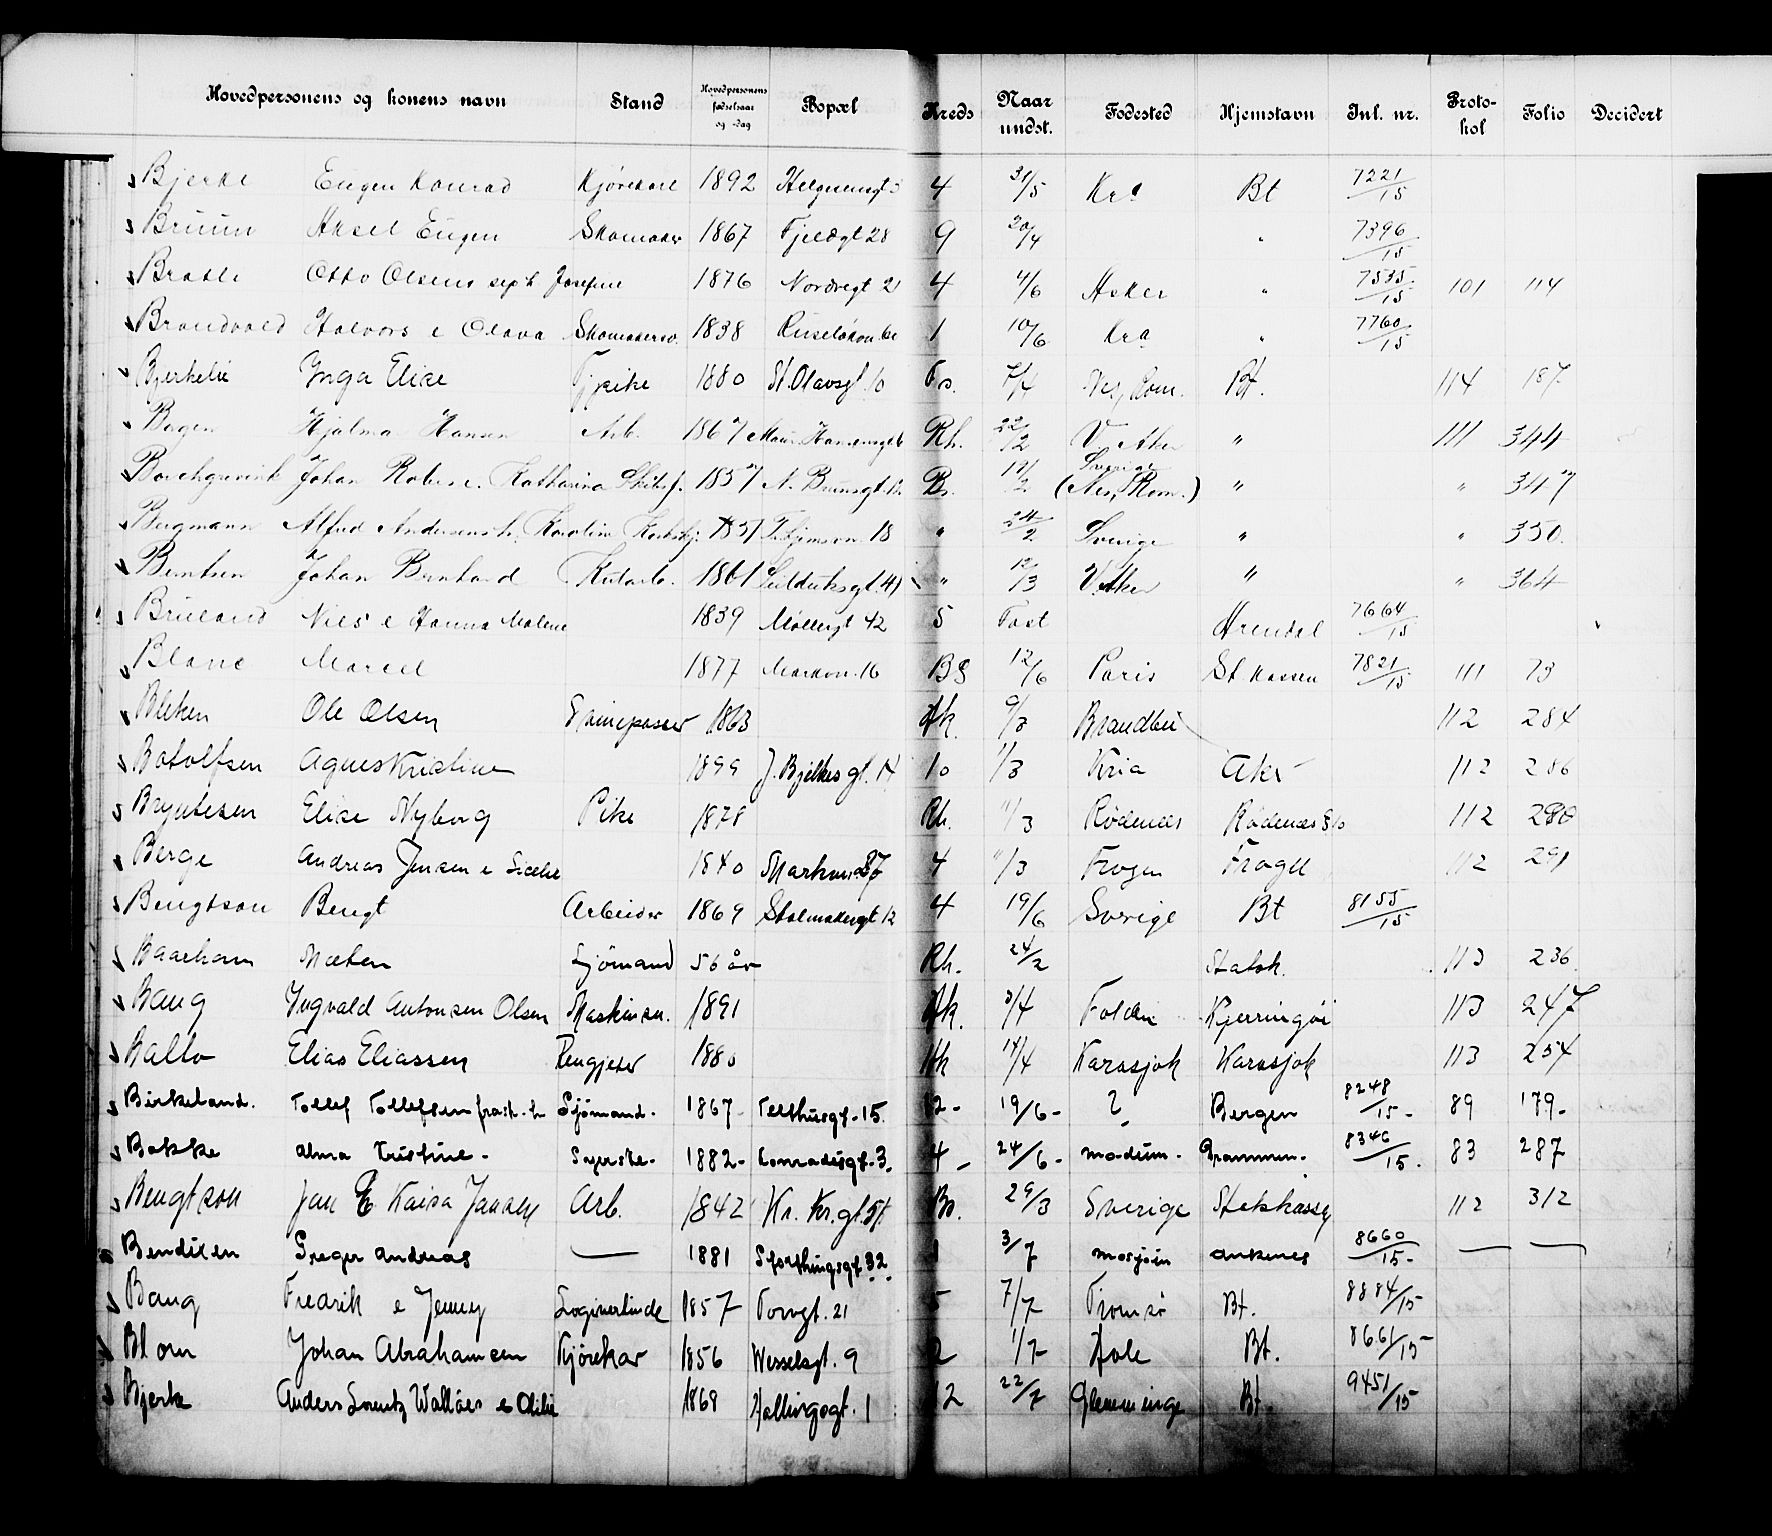 Hovedpersonens og konens navn Stand Hovedpersonens fødselsaar og -dag Bopæl Kreds Naar undst. Fødested Hjemstavn Inl. nr. Proto-kol Folio Decidert
Bjerke Eugen Konrad Kjørekarl 1892 4 31/5 Kra Bt 7221/15
Bruun Aksel Eugen Skomaker 1867 Fjeldgt 28 9 20/4 " 7396/15
Bratli Otto Olsens sep. h. Josefine 1876 Nordregt 21 4 4/6 Asker " 7535/15 101 114
Brandvold Halvors e Olava Skomakersv. 1838 1 10/6 Kra " 7760/15
Bjerkelie Inga Elise Pike 1880 St. Olavsgt. 10 Fro. 7/4 Nes, Rom. Bt. 114 187
Bogen Hjalmar Hansen Arb. 1867 Rh. 22/2 V. Aker " 111 344
Borchgrevink Johan Robert e. Katharina 1857 N. Brunsgt. Bs. 19/2 Sverige (Nes, Rom.) " " 347
Bergmann Alfred Andersens h. Karoline 1857 18 " 24/2 Sverige " " 350.
Berntsen Johan Bernhard 1861 " 12/3 V. Aker " " 364
Brueland Niels e Hanna Malene 1839 Møllergt 42 5 Fast Arendal 7664/15
Blanc Marcel 1877 Markvn. 16 BS 12/6 Paris St. kassen 7821/15 111 73
Bleken Ole Olsen Griinepasser 1863 Ak. 9/3 Brandbu 112 284
Botolfsen Agnes Kristine 1899 J. Bjelkes gt. 14 10 1/3 Kria Aker 112 286
Bryntesen Elise Nyborg Pike 1878 Rh. 11/3 Rødenes Rødenes 112 280
Berge Andreas Jensen e 1840 4 11/3 Frogn Frogn 112 291
Bengtson Bengt Arbeider 1869 Stolmakergt 12 4 19/6 Sverige Bt 8155/15
Baarham Sjømand 56 år Rh. 24/2 Statsk. 113 236
Baug Ingvald Antonsen Olsen Maskinsn. 1891 Ak. 3/4 Folden Kjerringöi 113 247
Ballo Elias Eliassen Rengjeter 1880 Ak 14/4 Karasjok Karasjok 113 254
Birkeland. Tollef Tollefsen frask. h Sjømand. 1867- Telthusgt. 15. 12- 19/6- ? Bergen 8248/15- 89 179-
Bakke Alma Kristine- Syerske- 1882- Konradisgt. 3. 4- 24/6- Modum. Drammen. 8346/15. 83 287
Bengtson Jan E Kaisa Jansen Arb. 1842 Kr. Kr. gt. 51 Bs. 29/3 Sverige Statskassen 112 312
Bendixen Greger Andreas — 1881 Storthingsgt. 32. 3/7 Mosjøin Ankenes 8660/15- — —
Baug Fredrik e Jenny Logivertinde 1857 Torvgt. 21 5 7/7 Tromsø Bt. 8884/15
Blom Johan Abrahamsen Kjørekar 1856 Wesselsgt. 9 2 1/7 Hole Bt. 8661/15-
Bjerk Anders Lorentz Wallöes e Olilie 1868 Hallingsgt. 1 12 22/7 Glemminge Bt. 9451/15